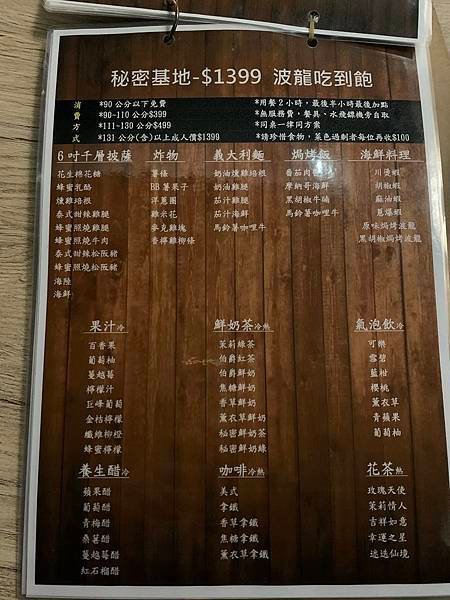 秘密基地-$1399 波龍吃到飽
消費方式
*90 公分以下免費
*90~110 公分$399
*111-130 公分$499
*131 公分(含)以上成人價$1399
*用餐2小時，最後半小時最後加點
*無服務費，餐具、水飛鏢機旁自取
*同桌一律同方案
*請珍惜食物，菜色過剩者每位再收$100
6吋千層披薩
花生棉花糖
蜂蜜乳酪
燻雞培根
泰式甜辣雞腿
蜂蜜照燒雞腿
蜂蜜照燒牛肉
泰式甜辣松阪豬
蜂蜜照燒松阪豬
海陸
海鮮
炸物
薯條
BB薯果子
洋蔥圈
雞米花
麥克雞塊
香檸雞柳條
義大利麵
奶油燻雞培根
奶油雞腿
茄汁雞腿
茄汁海鮮
馬鈴薯咖哩牛
焗烤飯
番茄肉
摩納哥海鮮
黑胡椒牛
馬鈴薯咖哩牛
海鮮料理
川燙蝦
胡椒蝦
蔴油蝦
蔥爆蝦
原味焗烤波龍
黑胡椒焗烤波龍
果汁冷
百香果
葡萄柚
蔓越莓
檸檬汁
巨峰葡萄
金桔檸檬
纖維柳橙
蜂蜜檸檬
鮮奶茶冷熱
茉莉綠茶
伯爵紅茶
伯爵鮮奶
焦糖鮮奶
香草鮮奶
薰衣草鮮奶
秘密鮮奶茶
秘密鮮奶綠
氣泡飲冷
可樂
雪碧
藍柑
櫻桃
薰衣草
青蘋果
葡萄柚
養生醋冷
蘋果醋
葡萄醋
青梅醋
桑葚醋
蔓越莓醋
紅石榴醋
咖啡冷熱
美式
拿鐵
香草拿鐵
焦糖拿鐵
薰衣草拿鐵
花茶熱
玫瑰天使
茉莉情人
吉祥如意
幸運之星
迷迭仙境